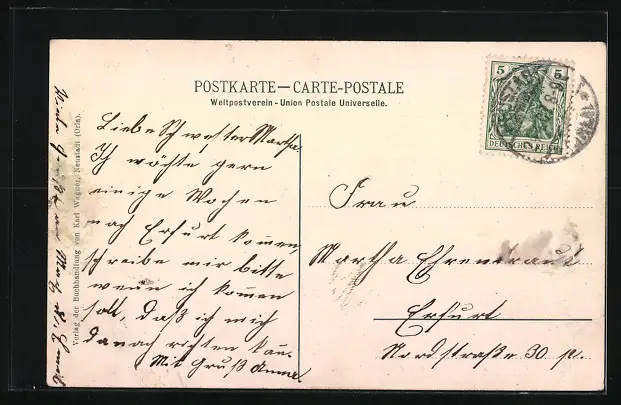 POSTKARTE—CARTE-POSTALE
Weltpostverein - Union Postale Universelle.
Liebe Schwester Martha.
Ich möchte gern
einige Wochen
nach Erfurt kommen,
schreibe mir bitte
wenn ich kommen
soll, daß ich mich
danach richten kann.
Mit Gruß Anna
Verlag der Buchhandlung von Karl Wagner, Neustadt (Orla).
5 5
DEUTSCHES REICH
Frau
Martha
Erfurt
Nordstraße 30 pt.